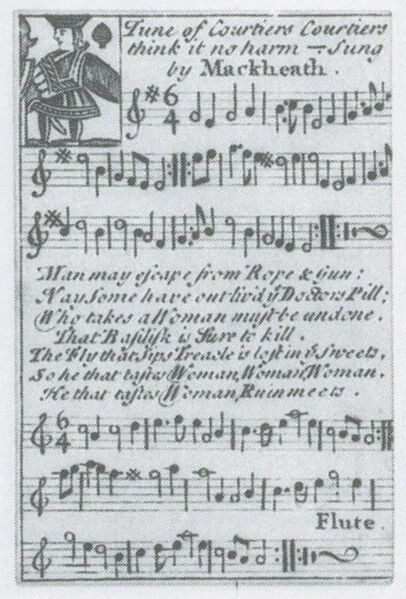 Tune of Courtiers Courtiers
think it no harm — Sung
by Mackheath.
6
4
Man may eſcape from Rope & Gun:
Nay Some have outliv'd yͤ Doctors Pill;
Who takes a Woman muſt be undone,
That Baſiliſk is Sure to kill.
The Fly that Sips Treacle is loſt in yͤ Sweets,
So he that taſtes Woman, Woman, Woman,
He that taſtes Woman, Ruin meets.
6
4
Flute.